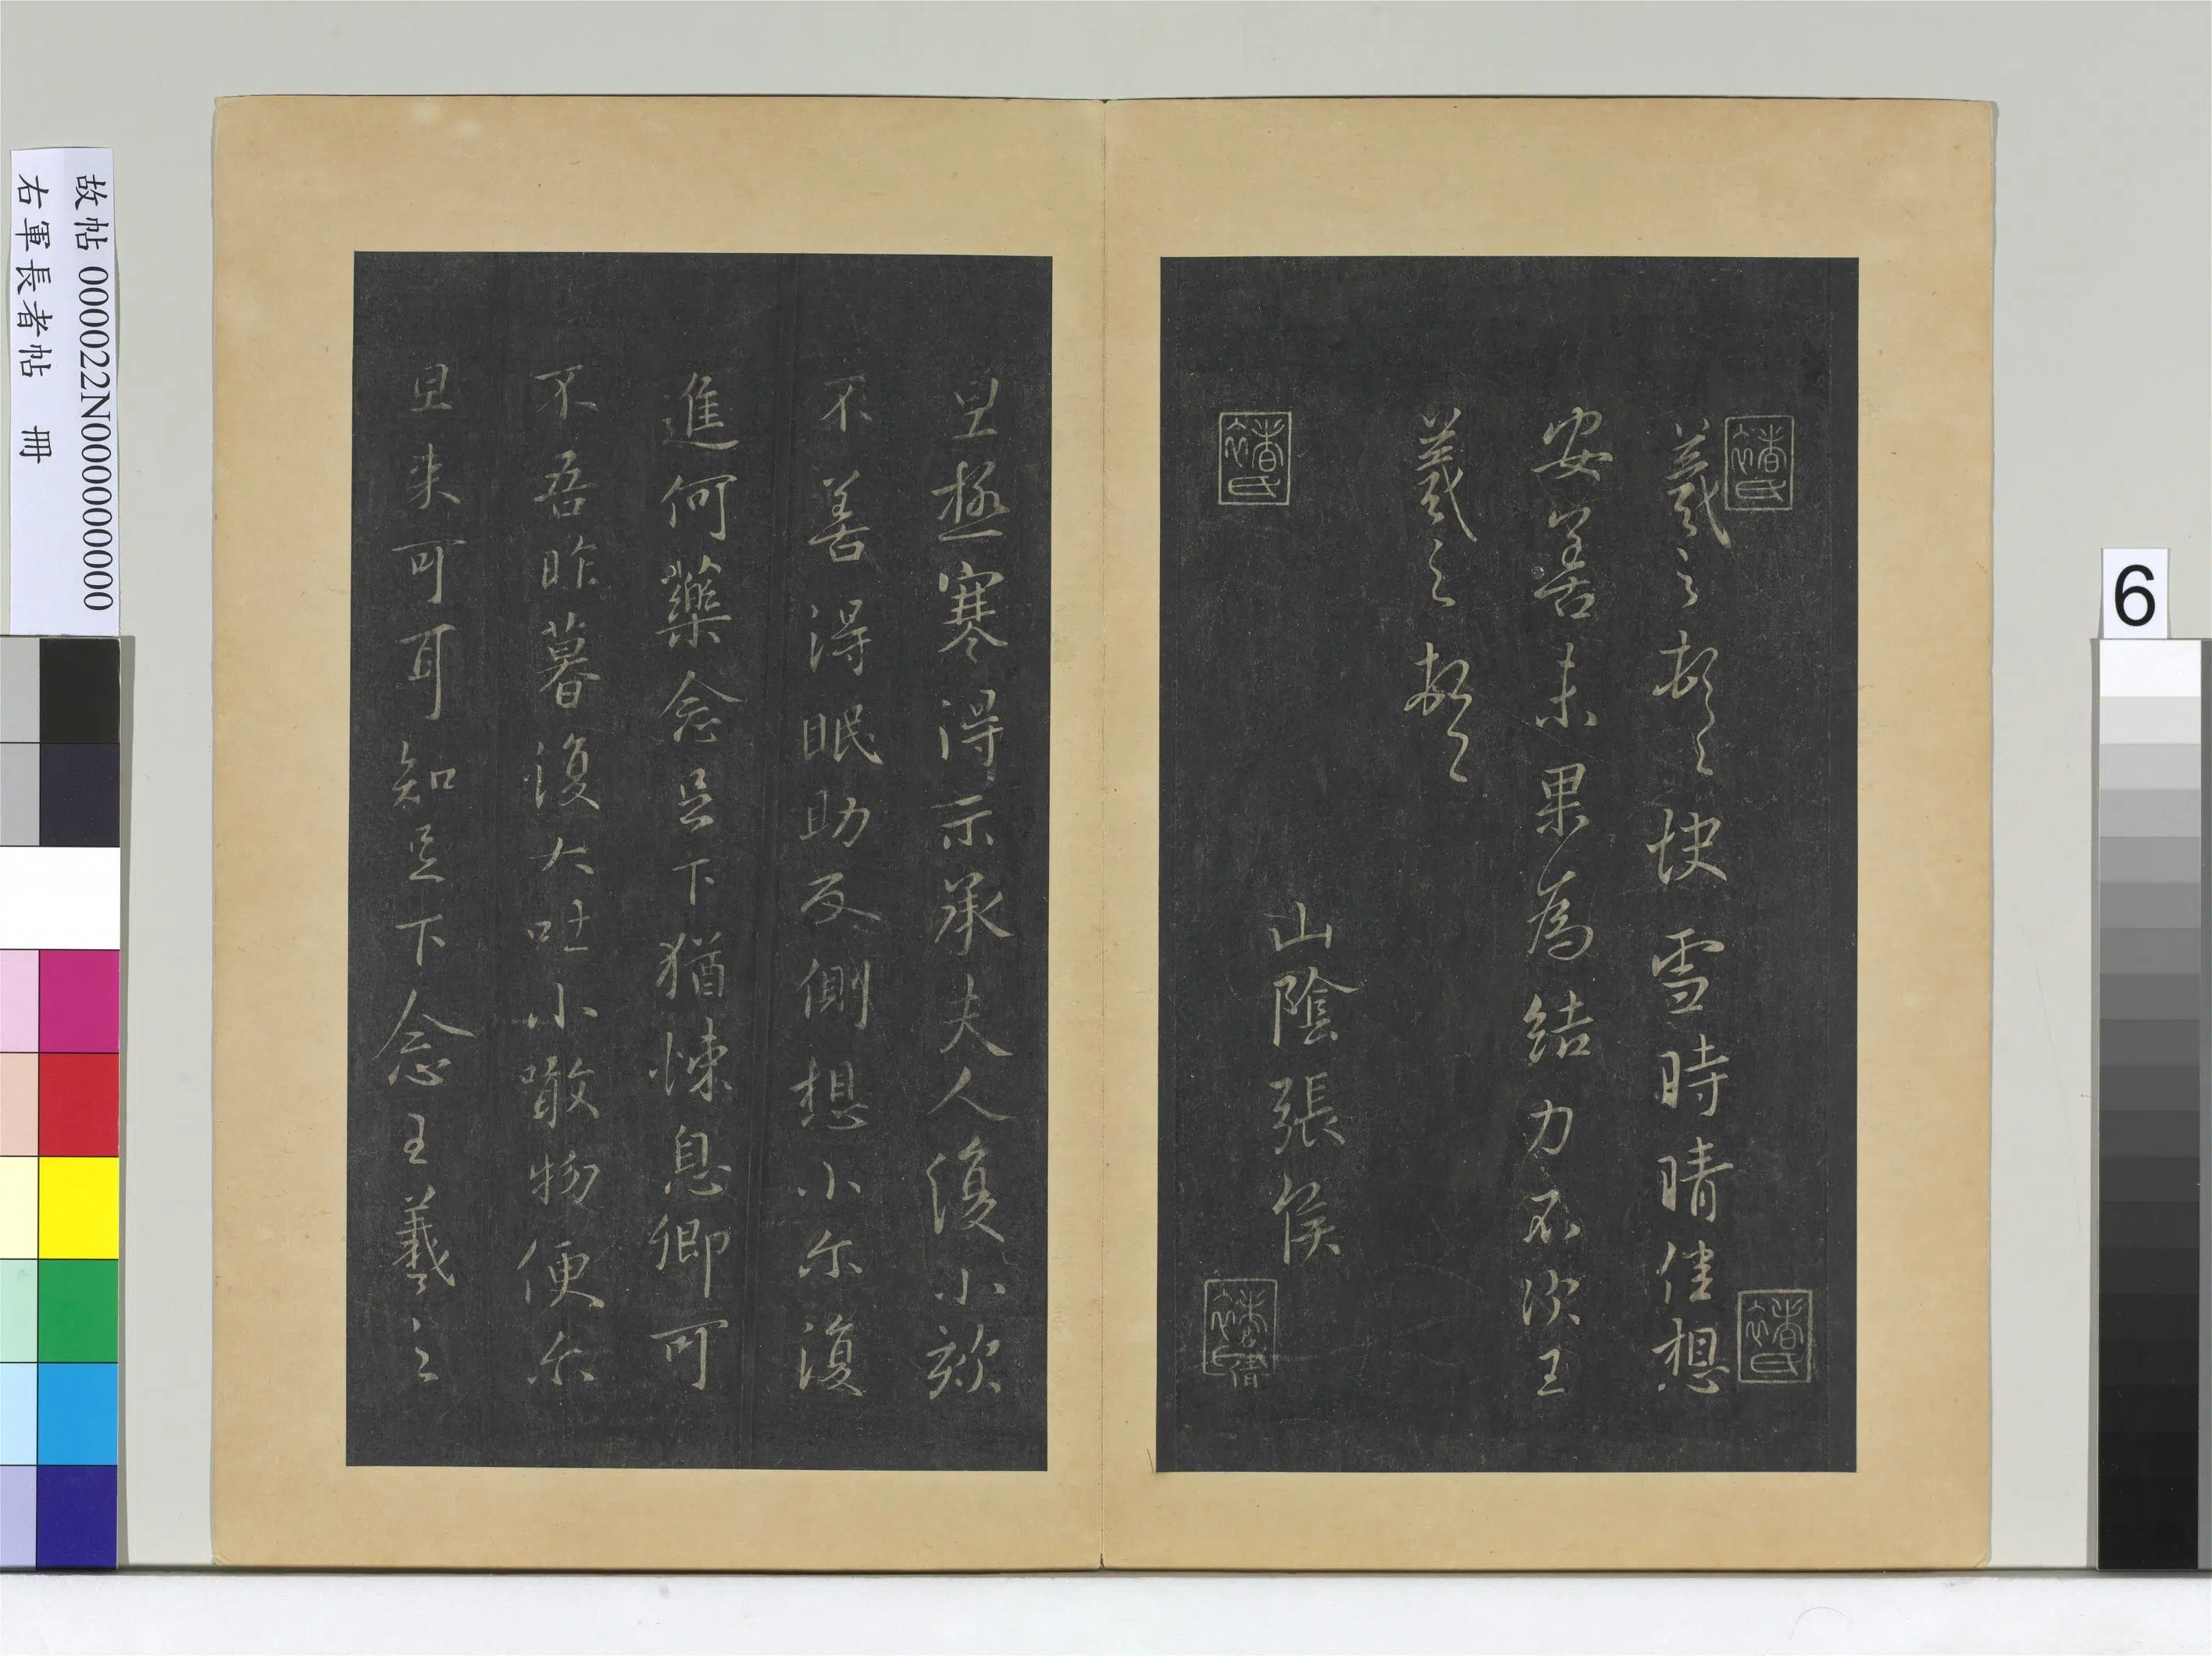 羲之頓々快雪時晴佳想
安善未果爲結力不次王
羲之頓々
山陰張侯
旦極寒得示承夫人復小欬
不善得眠助反側想小尔復
進何藥念足下猶悚息卿可
不吾昨暮復大吐小噉物便尔
旦来可耳知足下念王羲之
故帖 000022N000000000
右軍長者帖 冊
6